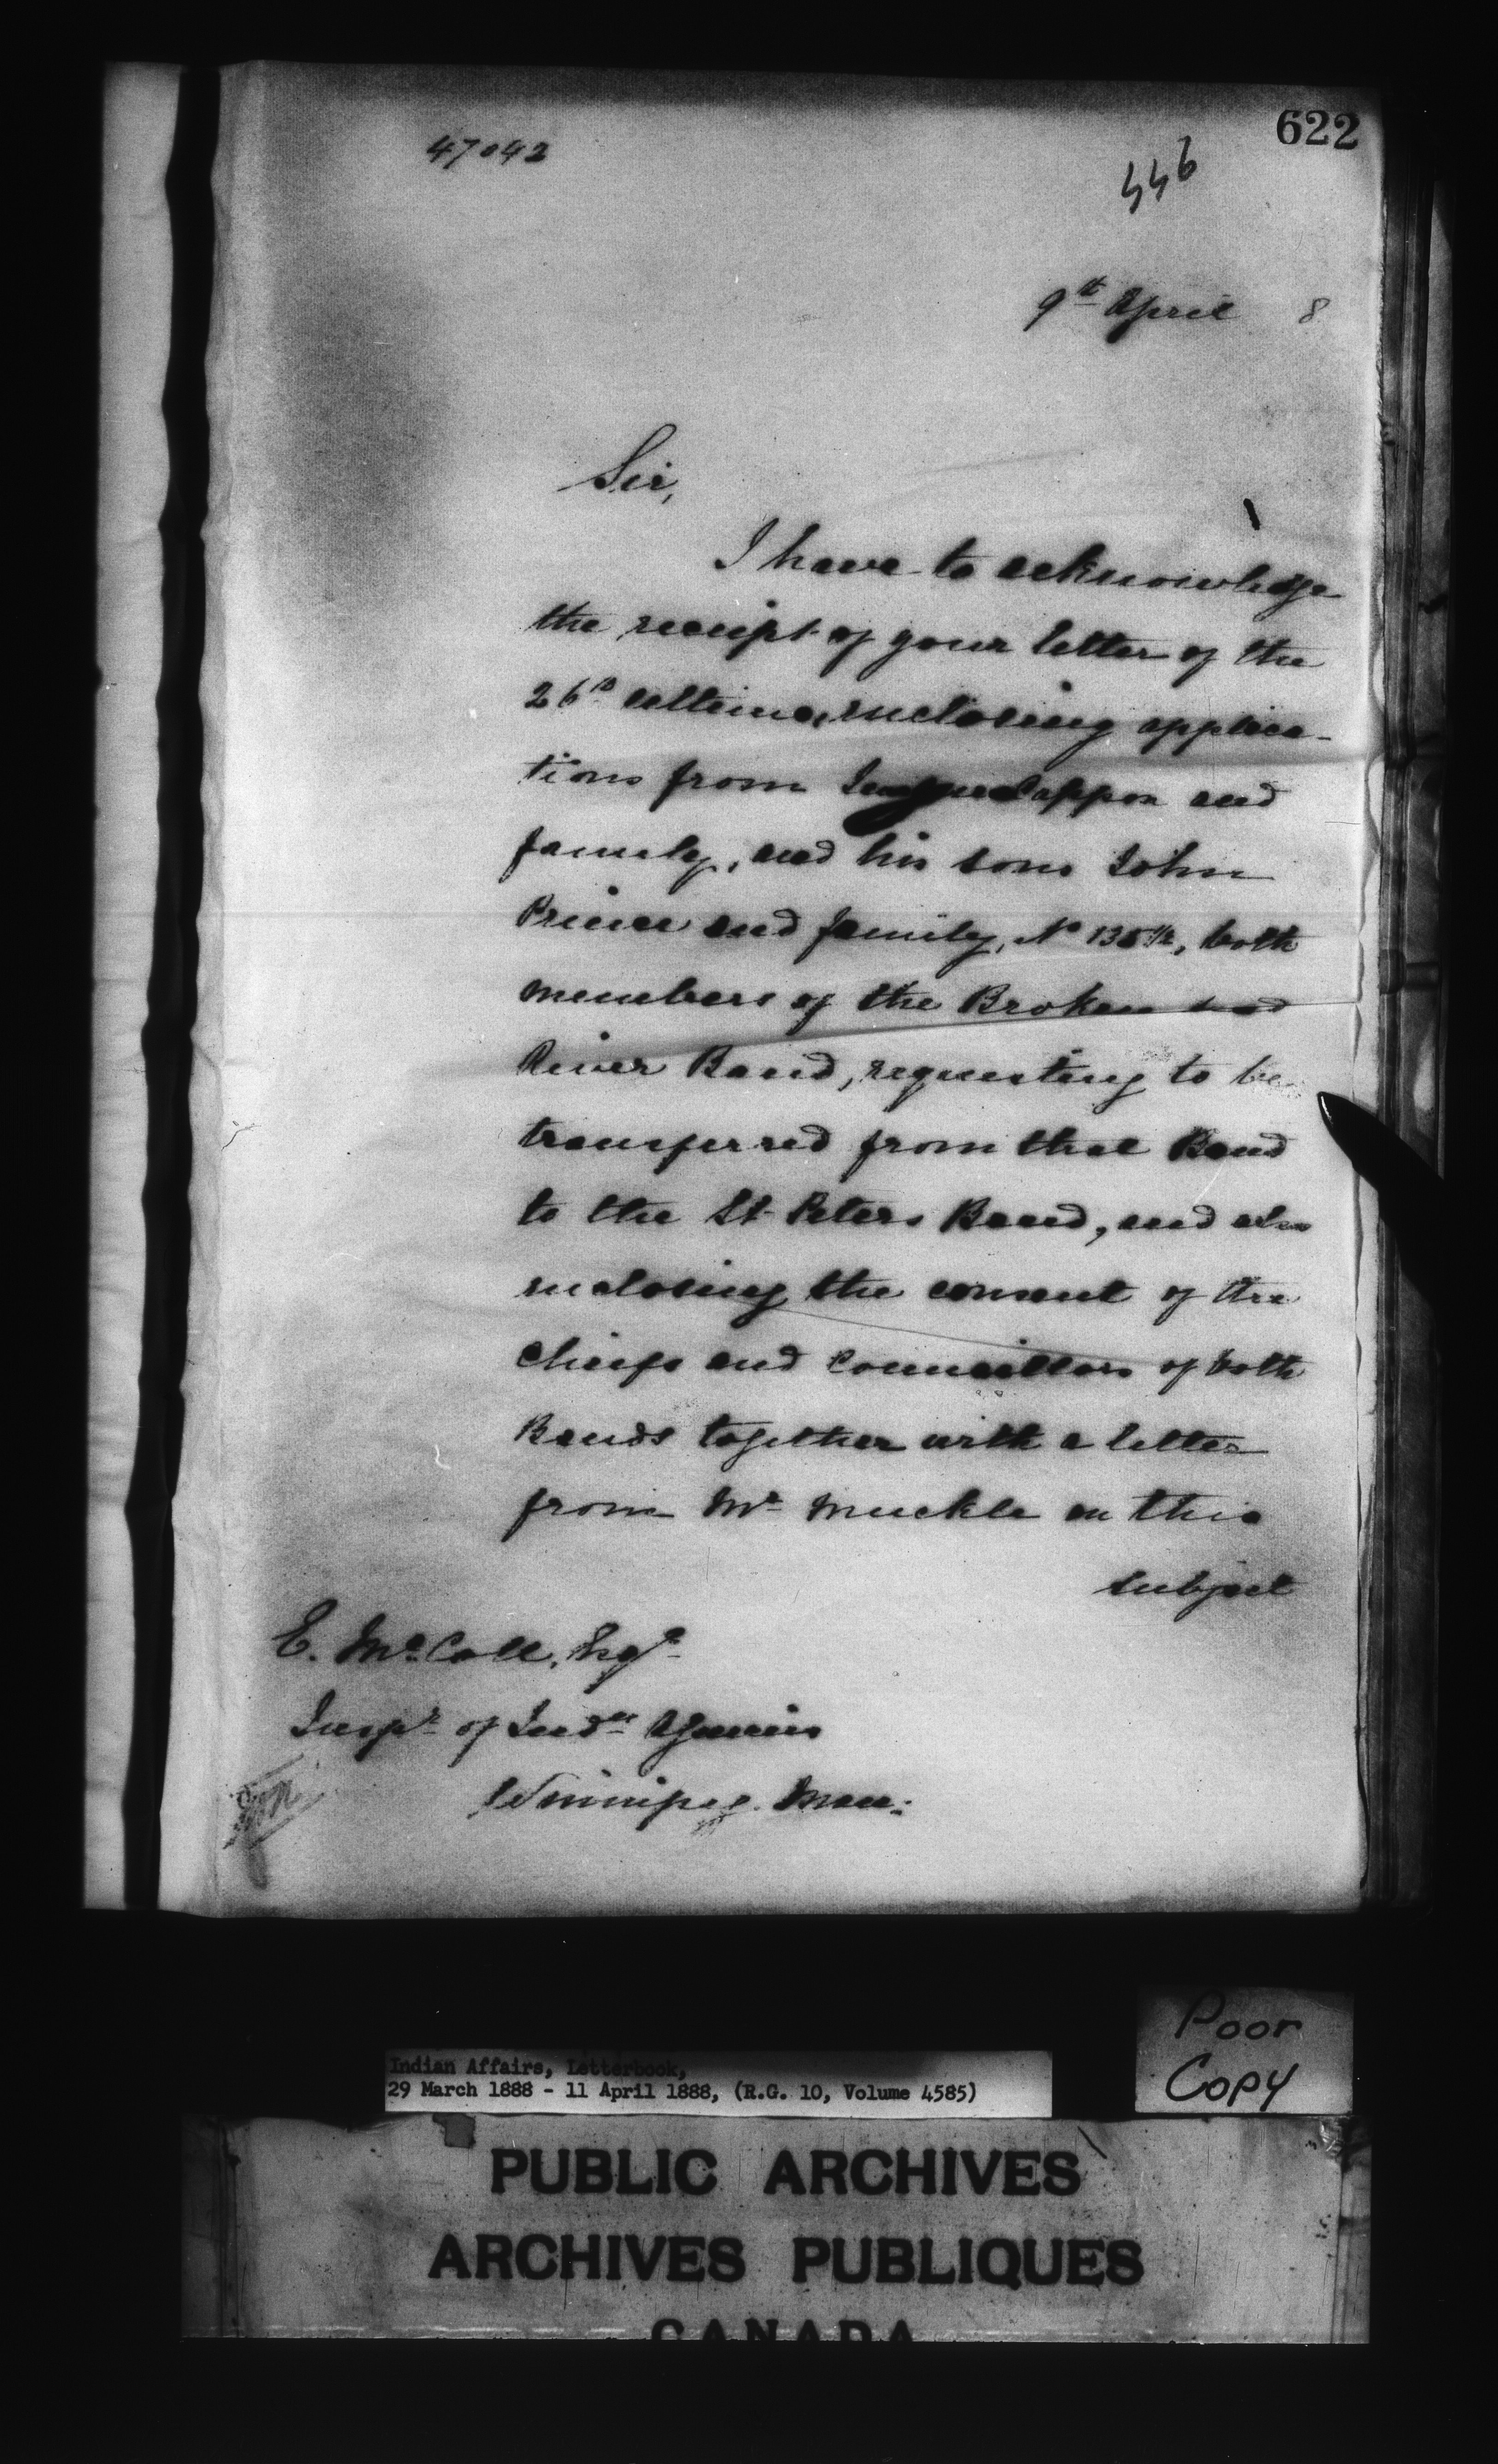 622
47042
446
9th April 8
Sir,
I have to acknowledge
the receipt of your letter of the
26th ultimo, enclosing applica-
tions from and
family, and his sons John
Prince and family, No 135½, both
members of the Broken Head
River Band, requesting to be
transferred from that Band
to the St Peters Band, and also
enclosing the consent of the
Chiefs and Councillors of both
Bands together with a letter
from Mr Muckle on this
subject
E. McColl, Esqre
Inspr of Indn Agencies
Winnipeg. Man:
Poor
Copy
Indian Affairs, Letterbook,
29 March 1888 - 11 April 1888, (R.G. 10, Volume 4585)
PUBLIC ARCHIVES
ARCHIVES PUBLIQUES
CANADA